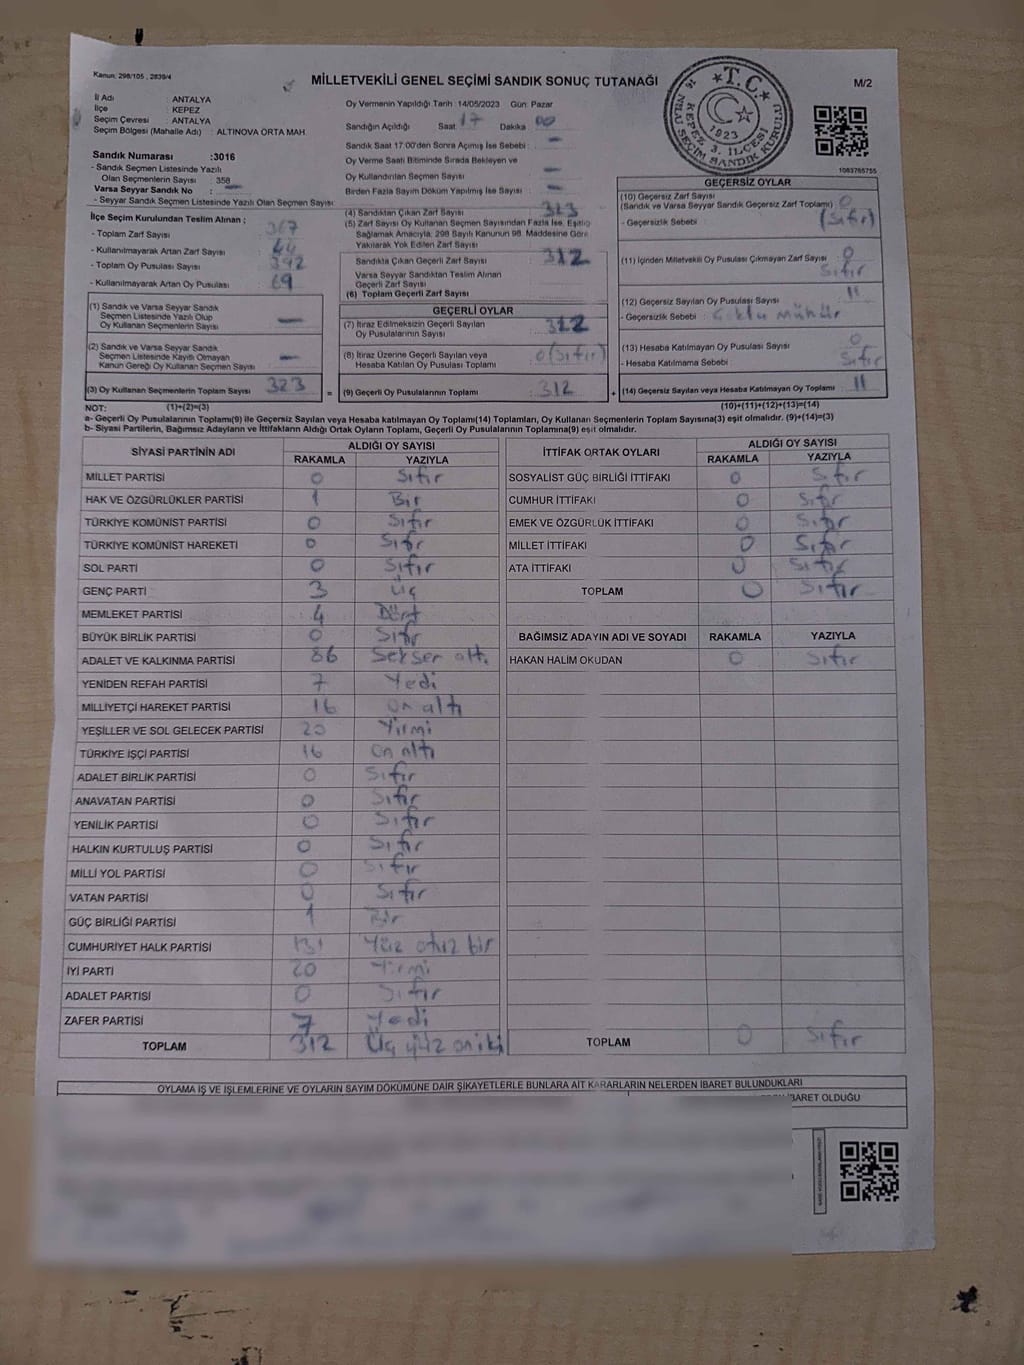 Kanun: 298/105 , 2839/4
MİLLETVEKİLİ GENEL SEÇİMİ SANDIK SONUÇ TUTANAĞI
M/2
İl Adı : ANTALYA
İlçe : KEPEZ
Seçim Çevresi : ANTALYA
Seçim Bölgesi (Mahalle Adı) : ALTINOVA ORTA MAH.
Sandık Numarası :3016
- Sandık Seçmen Listesinde Yazılı
Olan Seçmenlerin Sayısı : 358
Varsa Seyyar Sandık No : —
- Seyyar Sandık Seçmen Listesinde Yazılı Olan Seçmen Sayısı:
İlçe Seçim Kurulundan Teslim Alınan ;
- Toplam Zarf Sayısı : 367
- Kullanılmayarak Artan Zarf Sayısı : 44
- Toplam Oy Pusulası Sayısı : 392
- Kullanılmayarak Artan Oy Pusulası : 69
Oy Vermenin Yapıldığı Tarih :14/05/2023 Gün: Pazar
Sandığın Açıldığı Saat: 17 Dakika : 00
Sandık Saat 17:00'den Sonra Açımış İse Sebebi : —
Oy Verme Saati Bitiminde Sırada Bekleyen ve
Oy Kullandırılan Seçmen Sayısı : —
Birden Fazla Sayım Döküm Yapılmış İse Sayısı : —
T.C.
1923
KEPEZ 3. İLÇESİ
SANDIK KURULU
1083765755
(1) Sandık ve Varsa Seyyar Sandık
Seçmen Listesinde Yazılı Olup
Oy Kullanan Seçmenlerin Sayısı : —
(2) Sandık ve Varsa Seyyar Sandık
Seçmen Listesinde Kayıtlı Olmayan
Kanun Gereği Oy Kullanan Seçmen Sayısı : —
(3) Oy Kullanan Seçmenlerin Toplam Sayısı : 323 =
(4) Sandıktan Çıkan Zarf Sayısı : 323
(5) Zarf Sayısı Oy Kullanan Seçmen Sayısından Fazla İse, Eşitliği
Sağlamak Amacıyla, 298 Sayılı Kanunun 98. Maddesine Göre
Yakılarak Yok Edilen Zarf Sayısı :
Sandıkta Çıkan Geçerli Zarf Sayısı : 312
Varsa Seyyar Sandıktan Teslim Alınan
Geçerli Zarf Sayısı
(6) Toplam Geçerli Zarf Sayısı
GEÇERLİ OYLAR
(7) İtiraz Edilmeksizin Geçerli Sayılan
Oy Pusulalarının Sayısı : 312
(8) İtiraz Üzerine Geçerli Sayılan veya
Hesaba Katılan Oy Pusulası Toplamı : 0 (Sıfır)
(9) Geçerli Oy Pusulalarının Toplamı : 312 +
GEÇERSİZ OYLAR
(10) Geçersiz Zarf Sayısı
(Sandık ve Varsa Seyyar Sandık Geçersiz Zarf Toplamı) : 0
- Geçersizlik Sebebi : (Sıfır)
(11) İçinden Milletvekili Oy Pusulası Çıkmayan Zarf Sayısı : 0
Sıfır
(12) Geçersiz Sayılan Oy Pusulası Sayısı : 11
- Geçersizlik Sebebi : Çoklu mühür
(13) Hesaba Katılmayan Oy Pusulası Sayısı : 0
- Hesaba Katılmama Sebebi : Sıfır
(14) Geçersiz Sayılan veya Hesaba Katılmayan Oy Toplamı : 11
NOT: (1)+(2)=(3) (10)+(11)+(12)+(13)=(14)
a- Geçerli Oy Pusulalarının Toplamı(9) ile Geçersiz Sayılan veya Hesaba katılmayan Oy Toplamı(14) Toplamları, Oy Kullanan Seçmenlerin Toplam Sayısına(3) eşit olmalıdır. (9)+(14)=(3)
b- Siyasi Partilerin, Bağımsız Adayların ve İttifakların Aldığı Ortak Oyların Toplamı, Geçerli Oy Pusulalarının Toplamına(9) eşit olmalıdır.
SİYASİ PARTİNİN ADI ALDIĞI OY SAYISI
RAKAMLA YAZIYLA
MİLLET PARTİSİ 0 Sıfır
HAK VE ÖZGÜRLÜKLER PARTİSİ 1 Bir
TÜRKİYE KOMÜNİST PARTİSİ 0 Sıfır
TÜRKİYE KOMÜNİST HAREKETİ 0 Sıfır
SOL PARTİ 0 Sıfır
GENÇ PARTİ 3 Üç
MEMLEKET PARTİSİ 4 Dört
BÜYÜK BİRLİK PARTİSİ 0 Sıfır
ADALET VE KALKINMA PARTİSİ 86 Seksen altı
YENİDEN REFAH PARTİSİ 7 Yedi
MİLLİYETÇİ HAREKET PARTİSİ 16 on altı
YEŞİLLER VE SOL GELECEK PARTİSİ 20 Yirmi
TÜRKİYE İŞÇİ PARTİSİ 16 on altı
ADALET BİRLİK PARTİSİ 0 Sıfır
ANAVATAN PARTİSİ 0 Sıfır
YENİLİK PARTİSİ 0 Sıfır
HALKIN KURTULUŞ PARTİSİ 0 Sıfır
MİLLİ YOL PARTİSİ 0 Sıfır
VATAN PARTİSİ 0 Sıfır
GÜÇ BİRLİĞİ PARTİSİ 1 Bir
CUMHURİYET HALK PARTİSİ 131 Yüz otuz bir
İYİ PARTİ 20 Yirmi
ADALET PARTİSİ 0 Sıfır
ZAFER PARTİSİ 7 Yedi
TOPLAM 312 Üç yüz on iki
İTTİFAK ORTAK OYLARI ALDIĞI OY SAYISI
RAKAMLA YAZIYLA
SOSYALİST GÜÇ BİRLİĞİ İTTİFAKI 0 Sıfır
CUMHUR İTTİFAKI 0 Sıfır
EMEK VE ÖZGÜRLÜK İTTİFAKI 0 Sıfır
MİLLET İTTİFAKI 0 Sıfır
ATA İTTİFAKI 0 Sıfır
TOPLAM 0 Sıfır
BAĞIMSIZ ADAYIN ADI VE SOYADI RAKAMLA YAZIYLA
HAKAN HALİM OKUDAN 0 Sıfır
TOPLAM 0 Sıfır
OYLAMA İŞ VE İŞLEMLERİNE VE OYLARIN SAYIM DÖKÜMÜNE DAİR ŞİKAYETLERLE BUNLARA AİT KARARLARIN NELERDEN İBARET BULUNDUKLARI
İBARET OLDUĞU